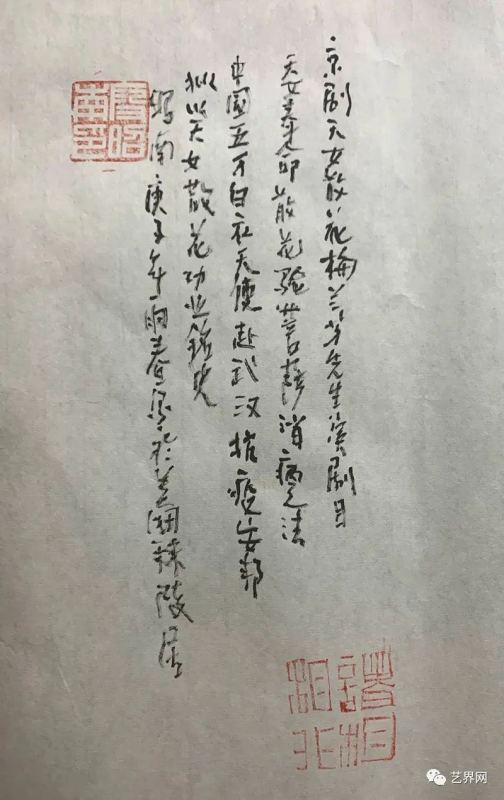 京剧天女散花梅兰芳先生演剧目
天女奉命散花验菩萨消病之法
中国五万白衣天使赴武汉抗疫安邦
拟以天女散花功业铭史
南庚子年春写於芜湖陵居
诸相非相
艺界网